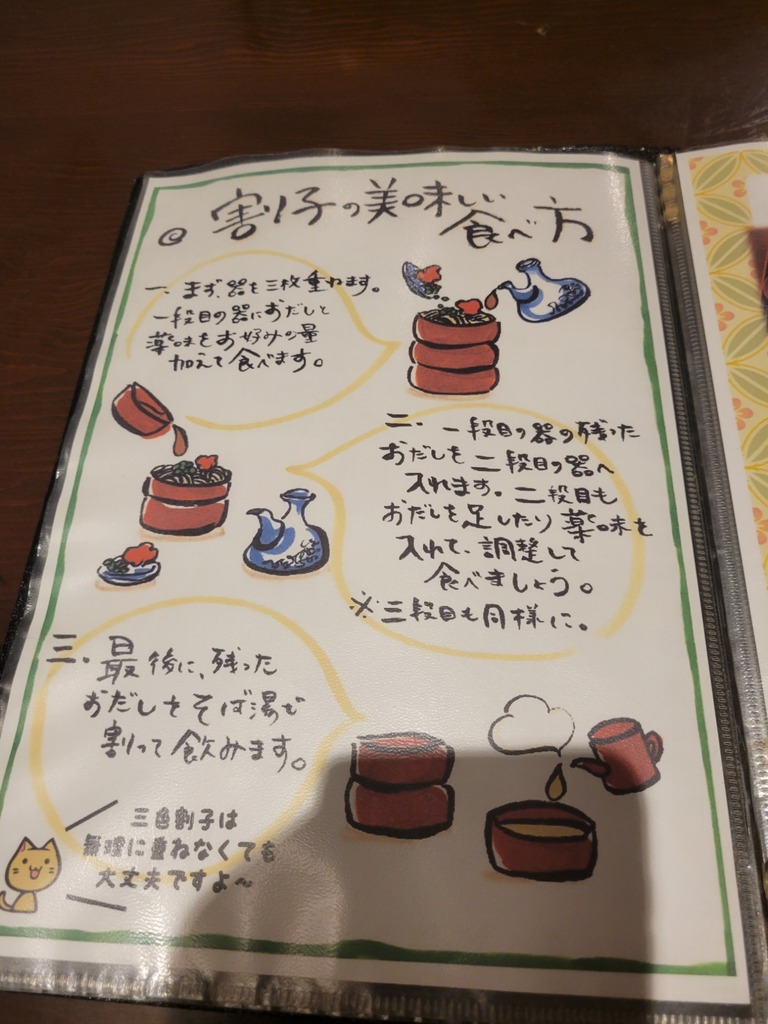 割子の美味しい
食べ方
一、まず、器を三枚重ねます。
一段目の器におだしと
薬味をお好みの量
加えて食べます。
二、一段目の器の残った
おだしを二段目の器へ
入れます。二段目も
おだしを足したり薬味を
入れて、調整して
食べましょう。
※三段目も同様に。
三、最後に、残った
おだしをそば湯で
割って飲みます。
三色割子は
無理に重ねなくても
大丈夫ですよ～